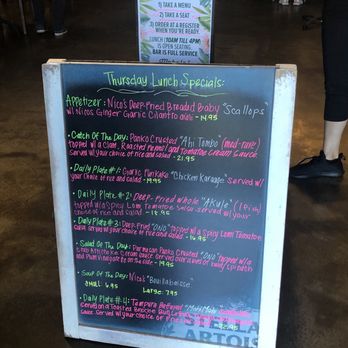 1) TAKE A MENU
2) TAKE A SEAT
3) ORDER AT A REGISTER
WHEN YOU'RE READY.
LUNCH (10AM TILL 4PM)
IS OPEN SEATING.
BAR IS FULL SERVICE
Thursday Lunch Specials:
Appetizer: Nico's Deep-Fried Breaded Baby "Scallops"
w/ Nicos Ginger Garlic Cilantro aioli - 14.95
Catch Of The Day: Panko Crusted "Ahi Tombo" (med-rare)
topped w/ a Clam, Roasted Fennel and Tomatoe Cream Sauce
Served w/ your choice of rice and salad - 21.95
Daily Plate #1: Garlic Furikake "Chicken Karaage" Served w/
your choice of rice and salad - 14.95
Daily Plate #2: Deep-Fried whole "Akule" (1 Fish)
topped w/ a Spicy Lomi Tomatoe Salsa served w/ your
choice of rice and salad -
Daily Plate #3: Deep-Fried "Ono" topped w/ a Spicy Lomi Tomatoe
Salsa served w/ your choice of rice and salad - 16.95
Salad Of The Day: Parmesan Panko Crusted "Ono" topped w/ a
Cream Sauce served over a bed of Baby Spinach
and Plum Vinaigrette on the side - 14.95
Soup Of The Day: Nico's "Bouillabaisse"
Small 6.95 Large 7.95
Daily Plate #4: Tempura Battered "Mahi Mahi"
Served on a Toasted Brioche Bun
Sauce Served w/ your choice of Fries
ARTOIS